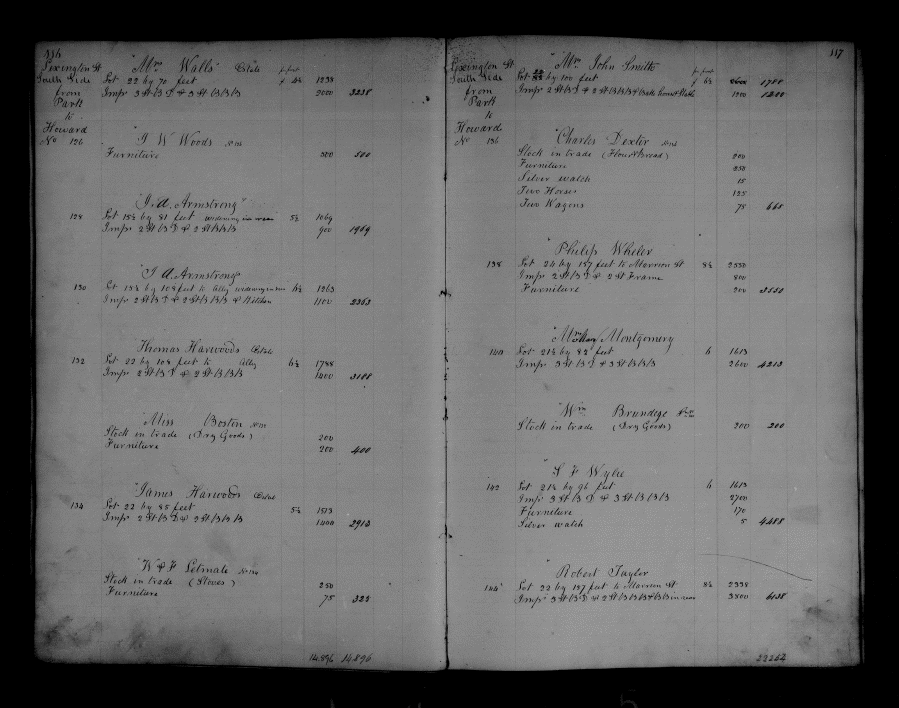 116
Lexington St
South Side
from
Park
to
Howard
"Mrs Walls" Estate pr foot
Lot 22 by 70 feet 1238
Imps 3 St B D & 3 St B/B/B 2000 3238
No 126
"J W Woods
Furniture 500 500
"J. A. Armstrong"
128 Lot 18½ by 81 feet widening in rear 5½ 1069
Imps 2 St B D & 2 St B/B/B 900 1969
"J A. Armstrong
130 Lot by 108 feet to Alley widening in rear 6½ 1263
Imps 2 St B D & 2 St B/B/B & Kitchen 1100 2363
Thomas Harwoods Estate
132 Lot 22 by 108 feet to Alley 6½ 1788
Imps 2 St B D & 2 St B/B/B 1400 3188
"Miss Boston
Stock in trade (Dry Goods) 200
Furniture 200 400
"James Harwoods Estate
134 Lot 22 by 85 feet 5½ 1513
Imps 2 St B D & 2 St B/B/B 1400 2913
"W & F
Stock in trade (Stoves) 250
Furniture 75 325
14.896 14.896
117
Lexington St
South Side
from
Park
to
Howard
"Mrs John Smith pr foot
Lot by 100 feet 1788
Imps 2 St B D & 2 St B/B/B & 1200 1200
No 136
"Charles Dexter
Stock in trade (Flour & Bread) 200
Furniture 250
Silver watch 15
Two Horses 125
Two Wagons 75 665
"Philip Wheler
138 Lot 24 by 187 feet to Marrion St 8½ 2550
Imps 2 St B D & 2 St Frame 800
Furniture 200 3550
"Mrs Mary Montgomery
140 Lot 21½ by 85 feet 6 1613
Imps 3 St B D & 3 St B/B/B 2600 4213
"Wm Brundege
Stock in trade (Dry Goods) 200 200
"S F Wylee
142 Lot 21½ by 96 feet 6 1613
Imps 3 St B D & 3 St B/B/B 2700
Furniture 170
Silver watch 5 4488
"Robert Taylor
144 Lot 22 by 187 feet to Marrion St 8½ 2338
Imps 3 St B D & 2 St B/B/B & B/B in rear 3800 6138